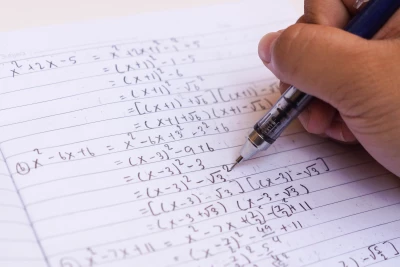 x²+2x-5 = x²+2x+1-1-5
= (x+1)²-6
= (x+1)²-6
= [(x+1)+√6][(x+1)-√6]
= (x+1+√6)(x+1-√6)
(b) x²-6x+6 = x²-6x+3²-3²+6
= (x-3)²-9+6
= (x-3)²-3
= (x-3)²-√3²
= [(x-3)+√3][(x-3)-√3]
= (x-3+√3)(x-3-√3)
x²-7x+11 = x²-7x+
+11